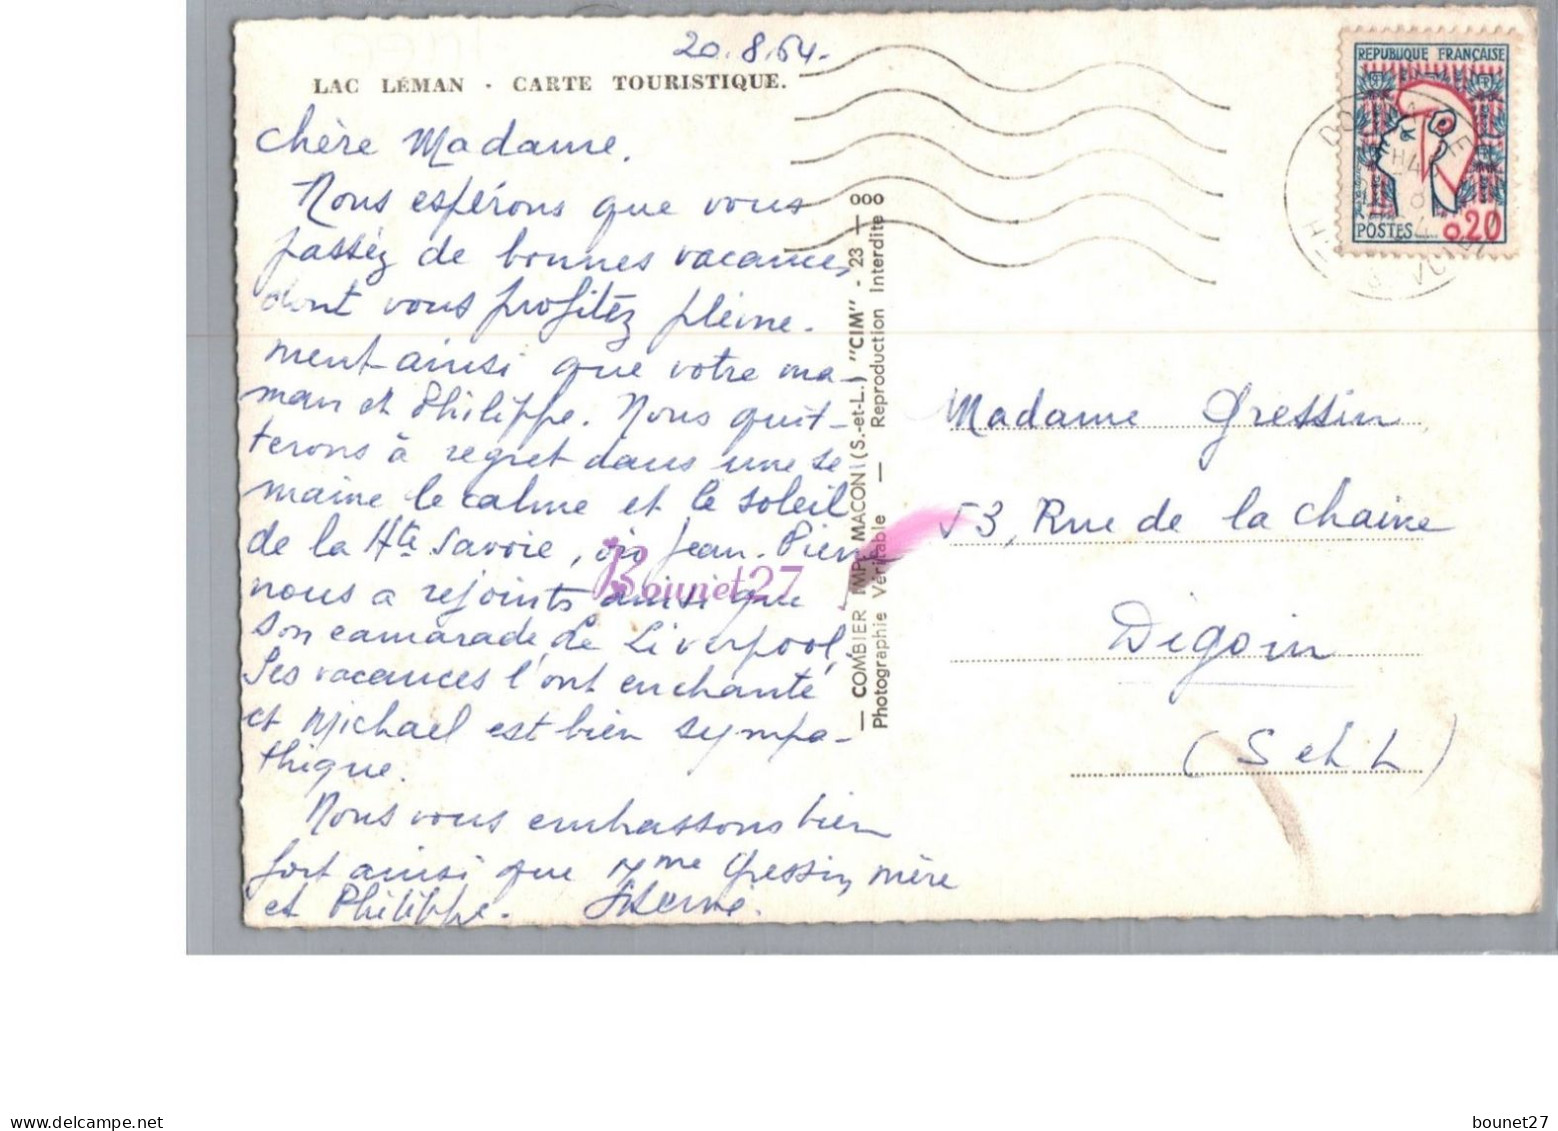 20.8.64.
LAC LÉMAN - CARTE TOURISTIQUE.
Chère Madame.
Nous espérons que vous
passéz de bonnes vacances,
dont vous profitéz pleine-
ment ainsi que votre ma-
man et Philippe. Nous quit-
terons à regret dans une se
maine le calme et le soleil
de la Hte Savoie, où Jean-Pierre
nous a rejoints ainsi que
son camarade de Liverpool,
Ses vacances l'ont enchanté
et Michael est bien sympa-
thique.
Nous vous embrassons bien
fort ainsi que Mme Gressin mère
et Philippe.
— COMBIER IMP. MACON (S.-et-L.) "CIM" - 23 — ooo
Photographie Véritable — Reproduction Interdite
REPUBLIQUE FRANÇAISE
POSTES 0.20
Madame Gressin
53, Rue de la Chaine
Digoin
(S et L)
Bounet27
delcampe.net
bounet27